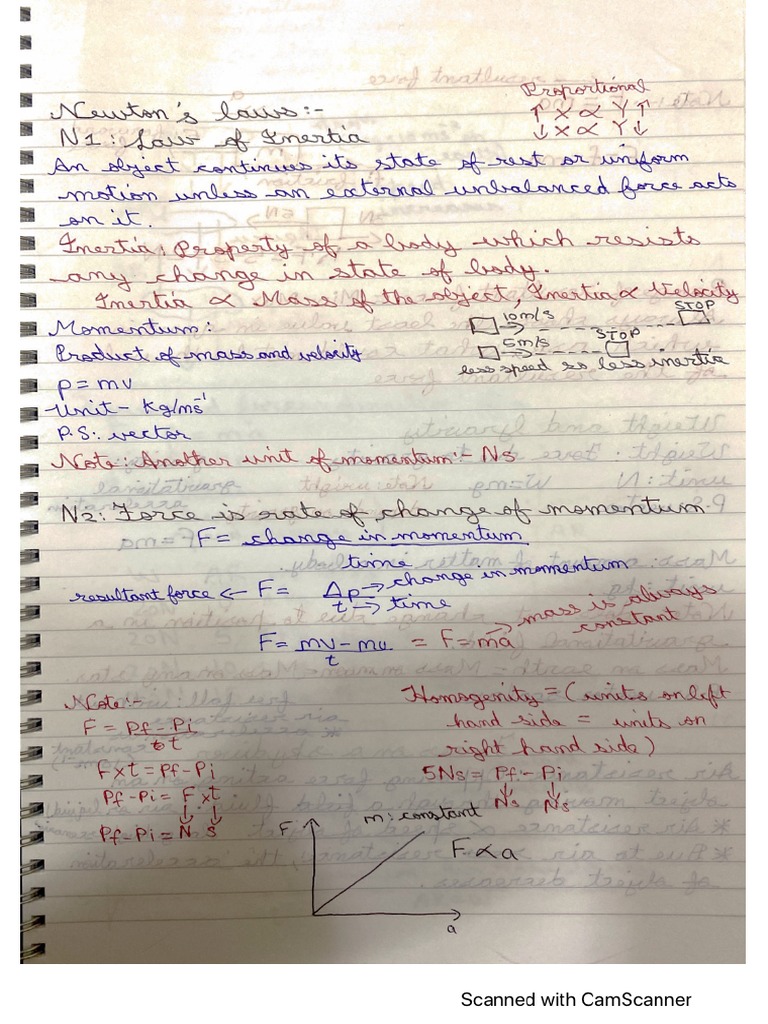 Proportional
Newton's laws:-
↑ X ∝ Y ↑
N1: Law of Inertia
↓ X ∝ Y ↓
An object continues its state of rest or uniform
motion unless an external unbalanced force acts
on it.
Inertia: Property of a body which resists
any change in state of body.
Inertia ∝ Mass of the object, Inertia ∝ Velocity
Momentum:
10m/s
STOP
5m/s
STOP
Product of mass and velocity
less speed so less inertia
p = mv
Unit - Kg/ms⁻¹
P.S: vector
Note: Another unit of momentum:- Ns
N2: Force is rate of change of momentum.
F = change in momentum
time
resultant force ← F = Δp → change in momentum
t → time
F = mv - mu = F = ma → mass is always constant
t
Note:-
F = Pf - Pi
t
F x t = Pf - Pi
Pf - Pi = F x t
Pf - Pi = N S
Homogenity = (units on left
hand side = units on
right hand side)
5Ns = Pf - Pi
Ns Ns
F
m: constant
F ∝ a
a
Scanned with CamScanner